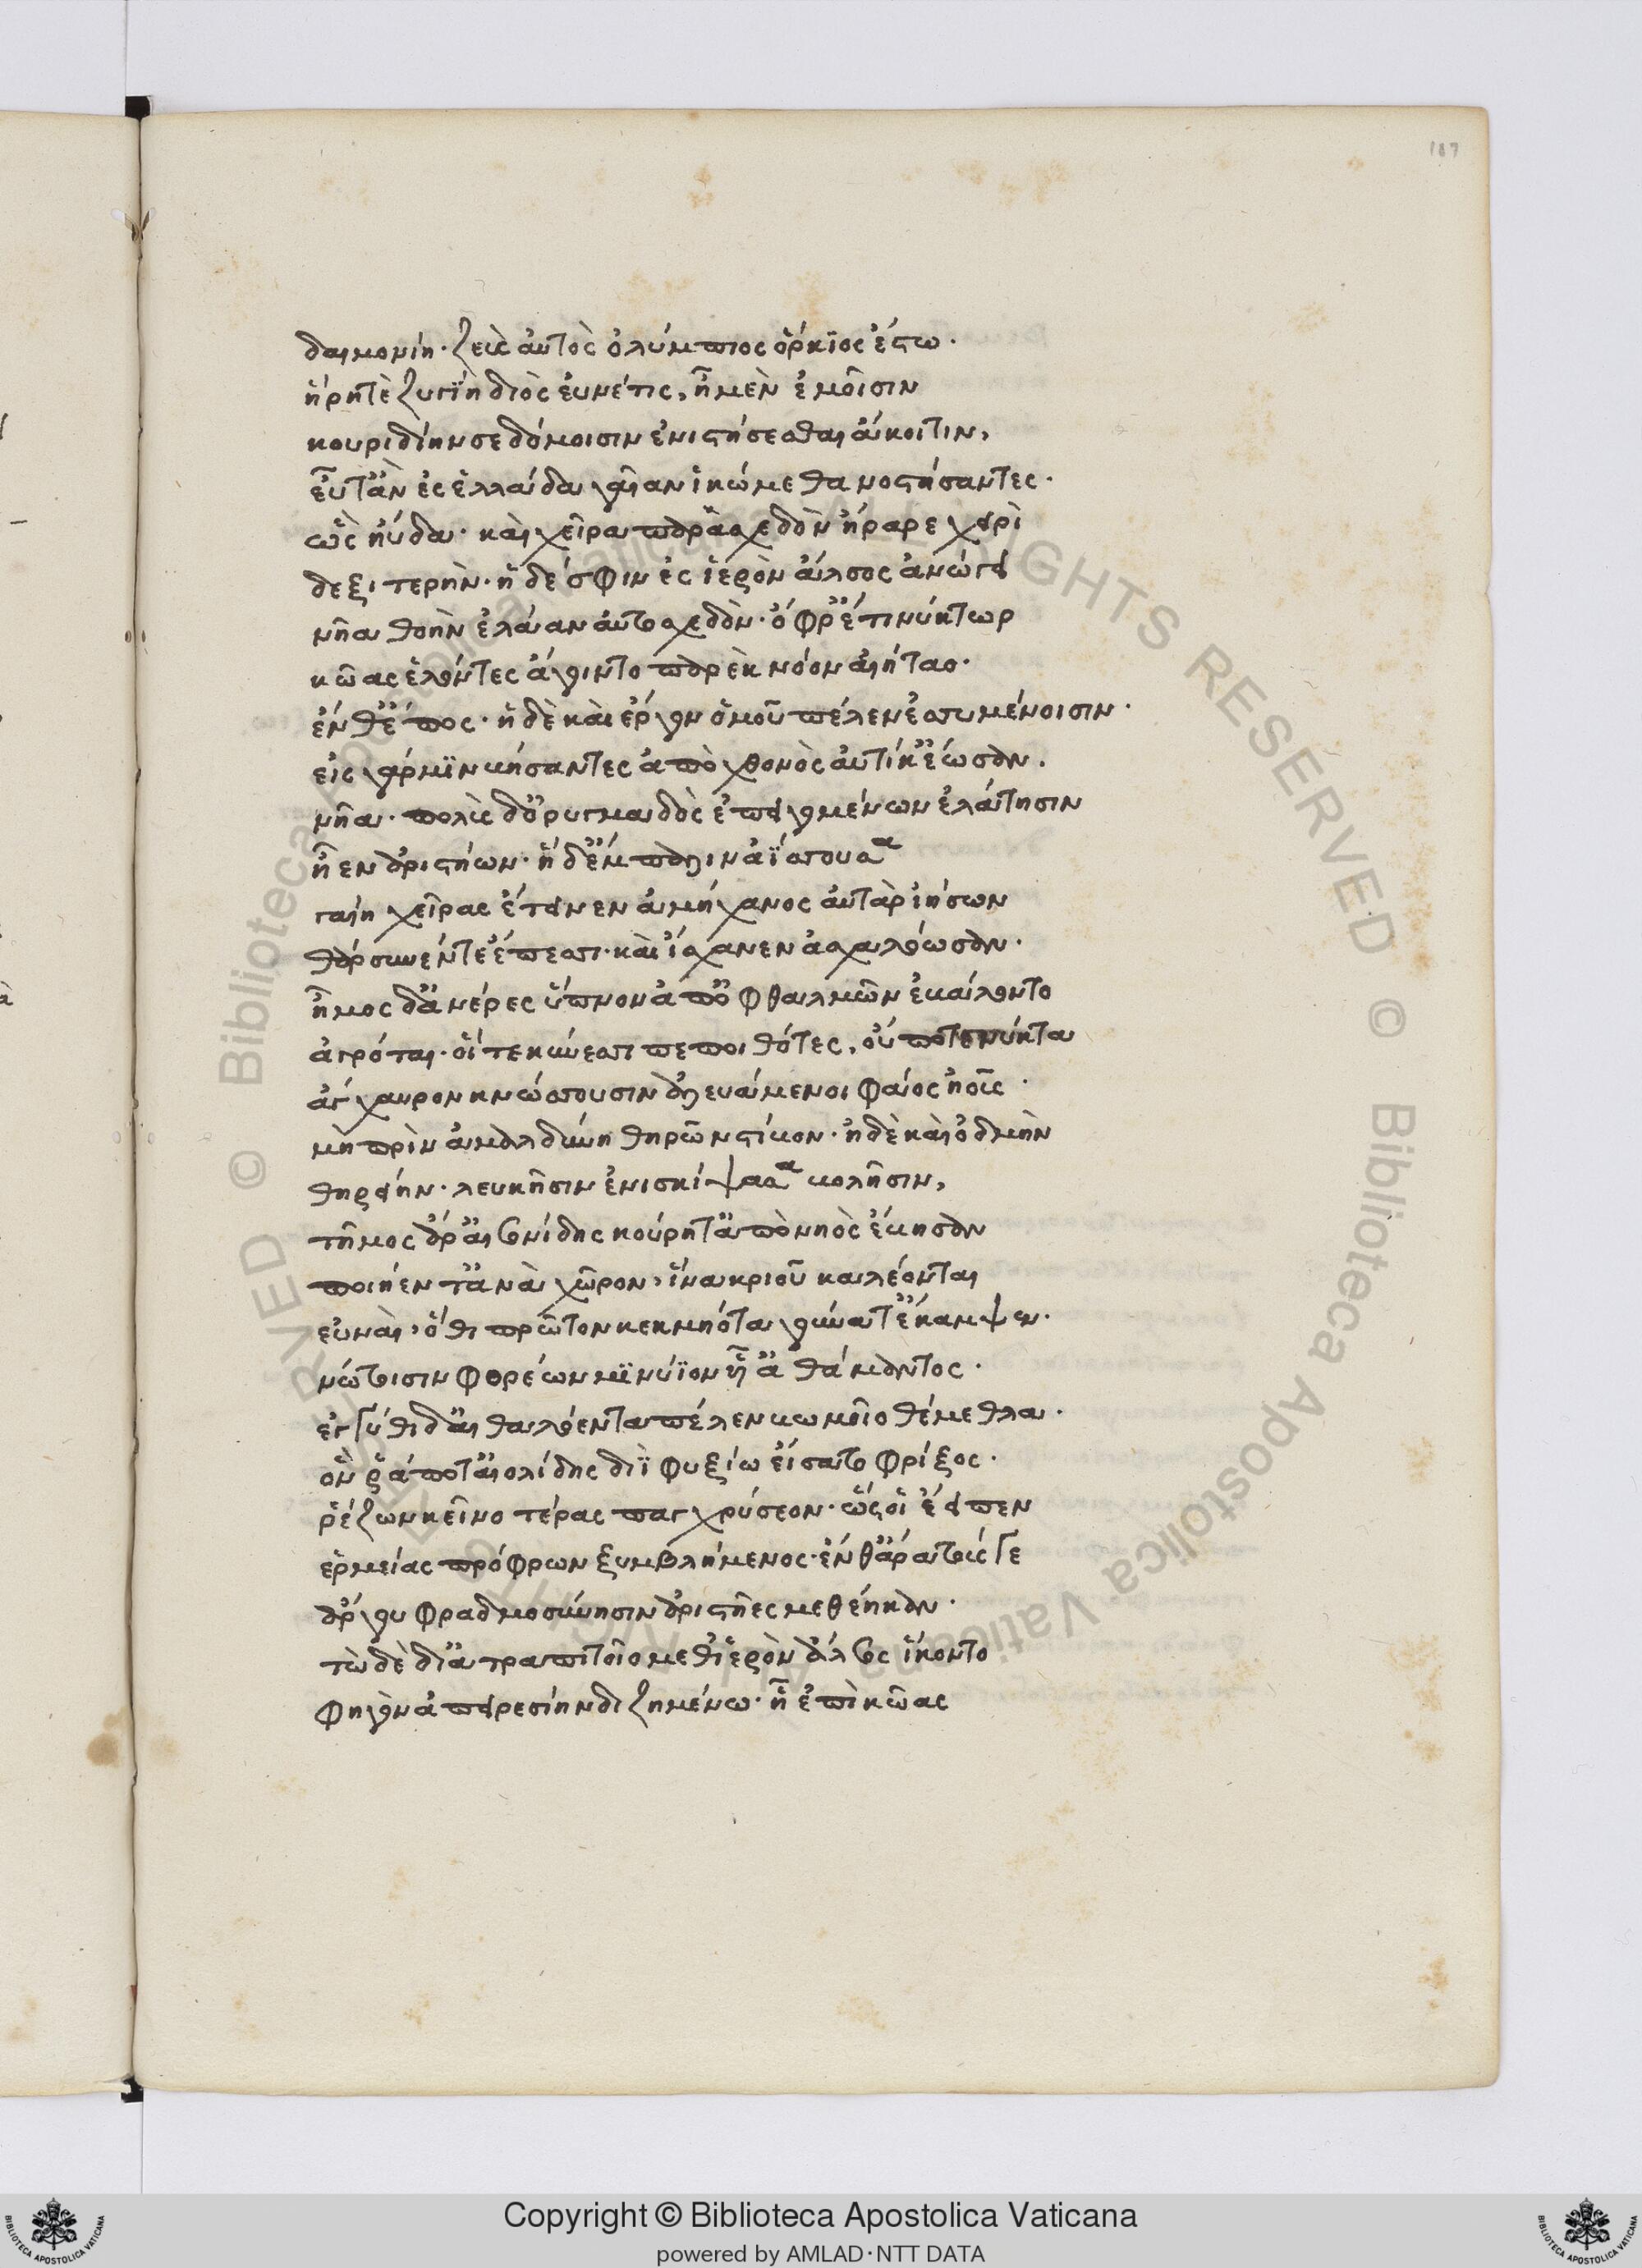 187
δαιμονίη· ζεὺς αὐτὸς ὀλύμπιος ὅρκιος ἔστω·
ἥρητὲ ζυγίη διὸς εὐνέτις, ἦ μὲν ἐμοῖσιν
κουριδίην σε δόμοισιν ἐνιστήσεσθαι ἄκοιτιν,
εὖτ' ἂν ἐς ἑλλάδα γαῖαν ἱκώμεθα νοστήσαντες·
ὣς ηὔδα· καὶ χεῖρα παρασχεδὸν ἤραρε χειρὶ
δεξιτερήν· ἡ δέ σφιν ἐς ἱερὸν ἄλσος ἀνώγει
νῆα θοὴν ἐλάαν αὐτοσχεδόν· ὄφρ' ἔτι νύκτωρ
κῶας ἑλόντες ἄγοιντο παρὲκ νόον αἰήταο·
ἔνθ' ἔπος· ἠδὲ καὶ ἔργον ὁμοῦ πέλεν ἐσσυμένοισιν·
εἰς γάρ μιν βήσαντες ἀπὸ χθονὸς αὐτίκ' ἔωσαν.
νῆα· πολὺς δ' ὀρυγμαδὸς ἐπειγομένων ἐλάτῃσιν
ἦεν ἀριστήων· ἡ δ' ἔμπαλιν ἀΐσσουσα
γαίῃ χεῖρας ἔτεινεν ἀμήχανος αὐτὰρ ἰήσων
θάρσυνέν τε ἔπεσσι· καὶ ἴσχανεν ἀσχαλόωσαν·
ἦμος δ' ἀνέρες ὕπνον ἀπ' ὀφθαλμῶν ἐβάλοντο
ἀγρόται· οἵ τε κύνεσσι πεποιθότες, οὔποτε νύκτα
ἄγχαυρον κνώσσουσιν ἀλευάμενοι φάος ἠοῦς·
μὴ πρὶν ἀμαλδύνῃ θηρῶν στίβον· ἠδὲ καὶ ὀδμὴν
θηρείην· λευκῇσιν ἐνισκίψασα βολῇσιν,
τῆμος ἄρ' αἰσονίδης κούρη τ' ἀπὸ νηὸς ἔβησαν
ποιήεντ' ἀνὰ χῶρον, ἵνα κριοῦ καλέονται
εὐναὶ, ὅθι πρῶτον κεκμηότα γούνατ' ἔκαμψεν·
νώτοισιν φορέων μινύϊον ἧ' ἀθάμαντος·
ἐγγύθι δ' αἰθαλόεντα πέλεν βωμοῖο θέμεθλα·
ὅν ῥά ποτ' αἰολίδης διῒ φυξίω εἴσατο φρίξος·
ῥέζων κεῖνο τέρας παγχρύσεον· ὥς οἱ ἔειπεν
ἑρμείας πρόφρων ξυμβλήμενος· ἔνθ' ἄρα τούς γε
ἄργου φραδμοσύνῃσιν ἀριστῆες μεθέηκαν·
τὼ δὲ δι' ἀτραπιτοῖο μεθ' ἱερὸν ἄλσος ἵκοντο
φηγὸν ἀπειρεσίην διζημένω· ἧ ἐπὶ κῶας
Copyright © Biblioteca Apostolica Vaticana
powered by AMLAD·NTT DATA